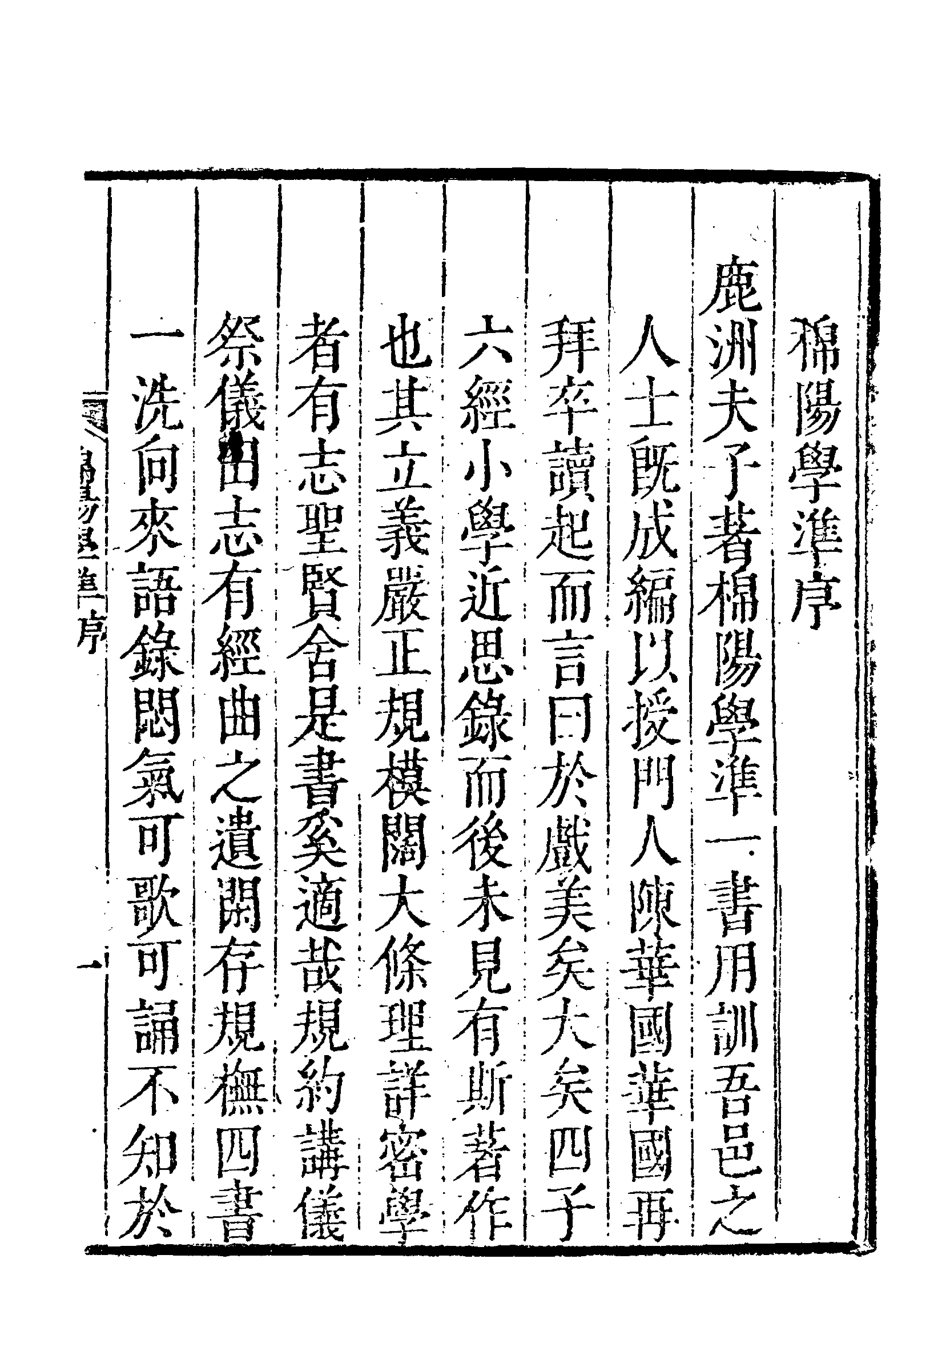 棉陽學準序
鹿洲夫子著棉陽學準一書用訓吾邑之
人士既成編以授門人陳華國華國再
拜卒讀起而言曰於戲美矣大矣四子
六經小學近思錄而後未見有斯著作
也其立義嚴正規模闊大條理詳密學
者有志聖賢舍是書奚適哉規約講儀
祭儀田志有經曲之遺閑存規橅四書
一洗向來語錄悶氣可歌可誦不知於
棉陽學準序
一